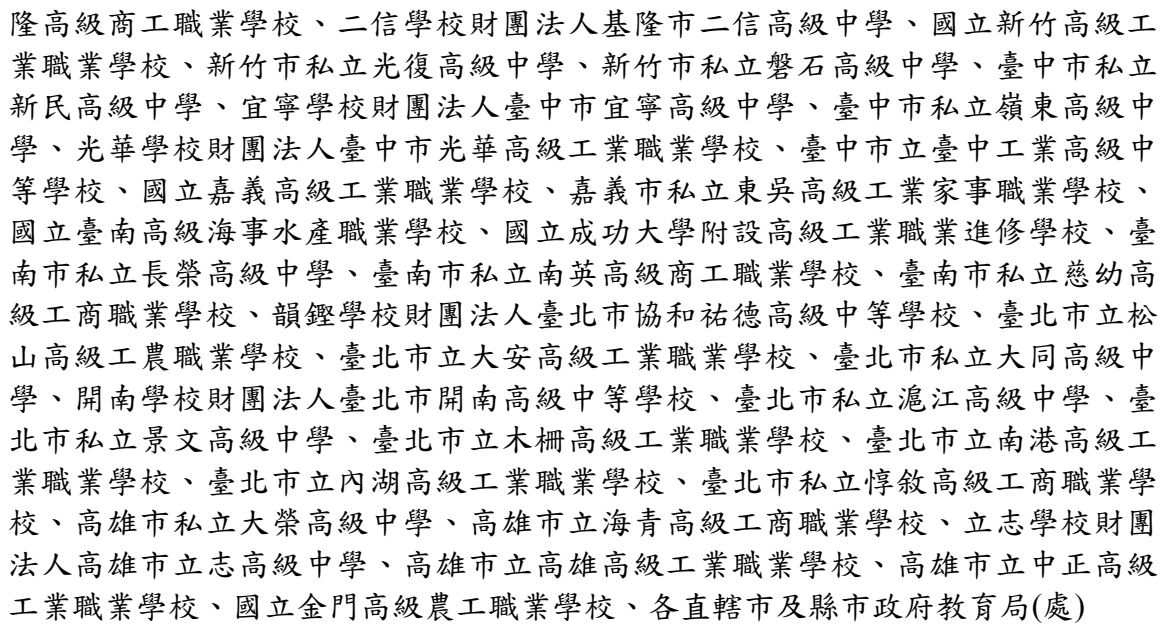 隆高級商工職業學校、二信學校財團法人基隆市二信高級中學、國立新竹高級工
業職業學校、新竹市私立光復高級中學、新竹市私立磐石高級中學、臺中市私立
新民高級中學、宜寧學校財團法人臺中市宜寧高級中學、臺中市私立嶺東高級中
學、光華學校財團法人臺中市光華高級工業職業學校、臺中市立臺中工業高級中
等學校、國立嘉義高級工業職業學校、嘉義市私立東吳高級工業家事職業學校、
國立臺南高級海事水產職業學校、國立成功大學附設高級工業職業進修學校、臺
南市私立長榮高級中學、臺南市私立南英高級商工職業學校、臺南市私立慈幼高
級工商職業學校、韻鏗學校財團法人臺北市協和祐德高級中等學校、臺北市立松
山高級工農職業學校、臺北市立大安高級工業職業學校、臺北市私立大同高級中
學、開南學校財團法人臺北市開南高級中等學校、臺北市私立滬江高級中學、臺
北市私立景文高級中學、臺北市立木柵高級工業職業學校、臺北市立南港高級工
業職業學校、臺北市立內湖高級工業職業學校、臺北市私立惇敘高級工商職業學
校、高雄市私立大榮高級中學、高雄市立海青高級工商職業學校、立志學校財團
法人高雄市立志高級中學、高雄市立高雄高級工業職業學校、高雄市立中正高級
工業職業學校、國立金門高級農工職業學校、各直轄市及縣市政府教育局(處)